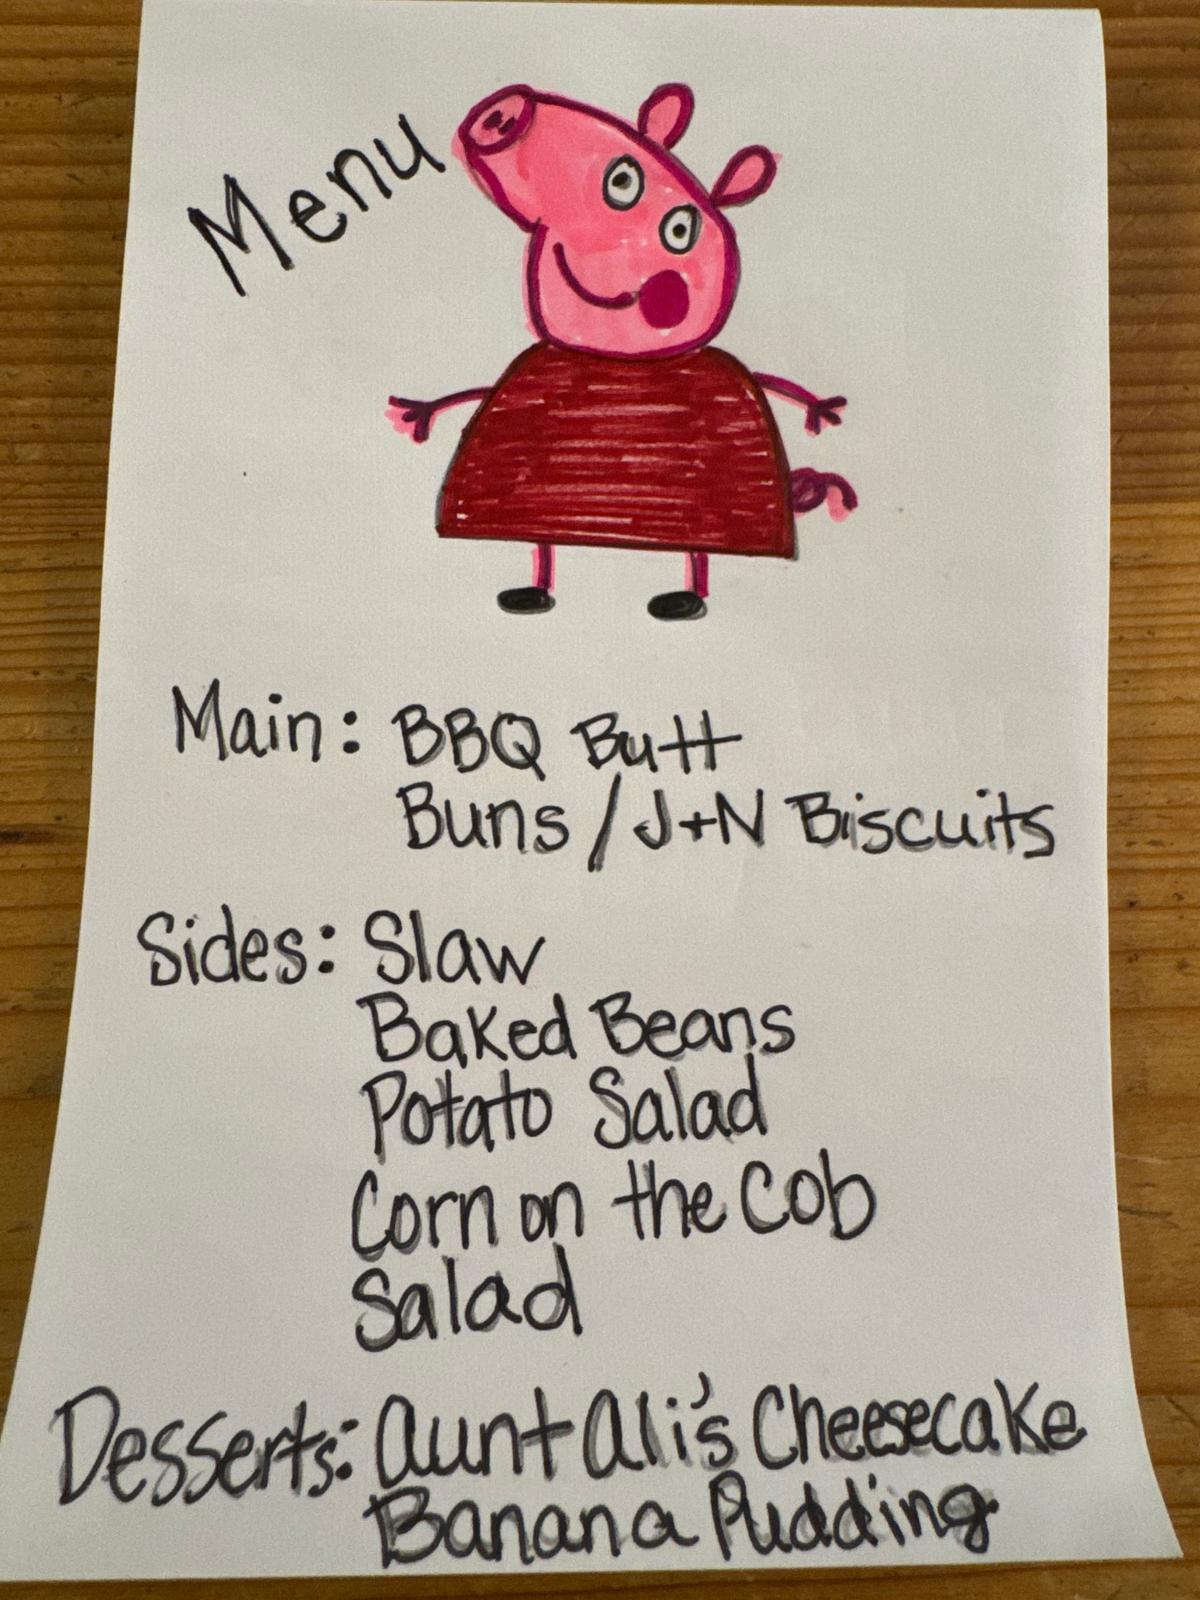 Menu
Main: BBQ Butt
Buns / J+N Biscuits
Sides: Slaw
Baked Beans
Potato Salad
Corn on the Cob
Salad
Desserts: Aunt Ali's Cheesecake
Banana Pudding